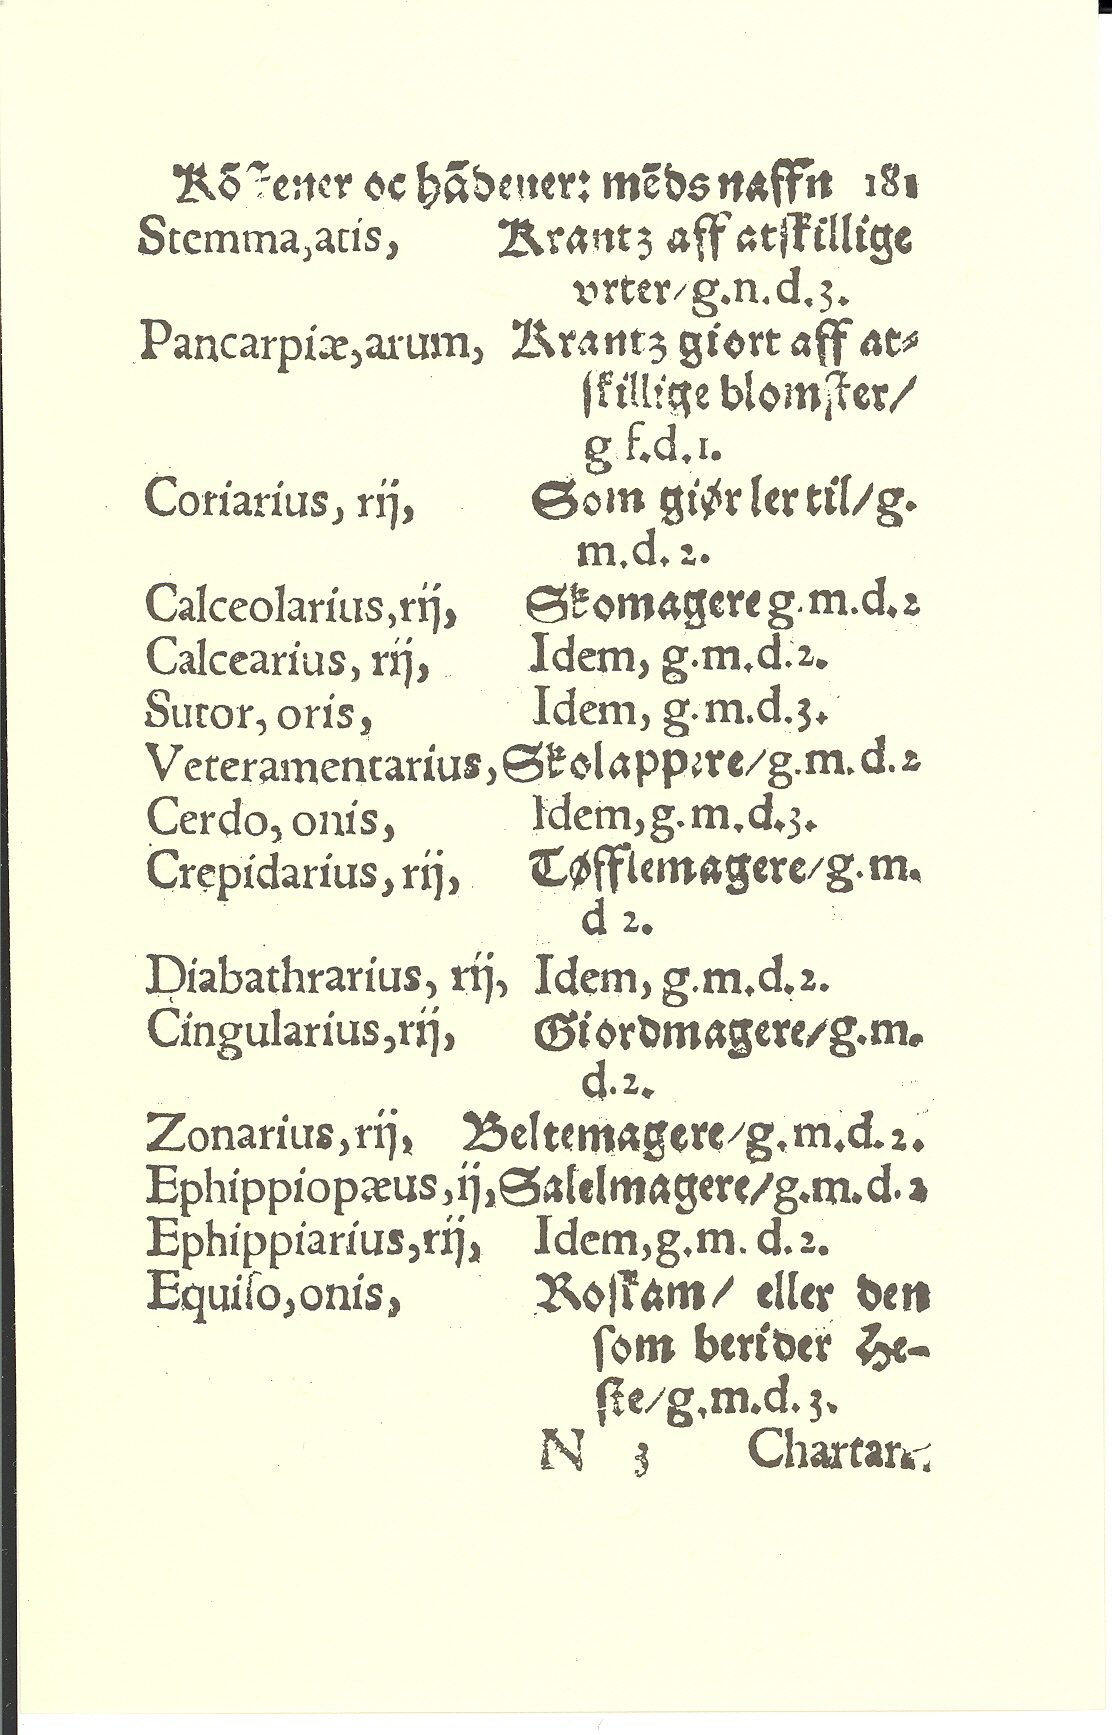 oc hãdeuer: mẽds naffn 181
Stemma,atis, Krantz aff atskillige
vrter/g.n.d.3.
Pancarpiæ,arum, Krantz giort aff at⸗
skillige blomster/
g f.d.1.
Coriarius, rij, Som giør ler til/g.
m.d. 2.
Calceolarius,rij, Skomagere g.m.d.2
Calcearius, rij, Idem, g.m.d.2.
Sutor, oris, Idem, g.m.d.3.
Veteramentarius, Skolappere/g.m.d.2
Cerdo, onis, Idem,g.m.d.3.
Crepidarius,rij, Tøfflemagere/g.m.
d 2.
Diabathrarius, rij, Idem, g.m.d.2.
Cingularius,rij, Giordmagere/g.m.
d.2.
Zonarius,rij, Beltemagere/g.m.d.2.
Ephippiopæus,ij, Salelmagere/g.m.d.2
Ephippiarius,rij, Idem,g.m. d.2.
Equiſo,onis, Roſkam/ eller den
ſom berider He-
ſte/g.m.d.3.
N 3